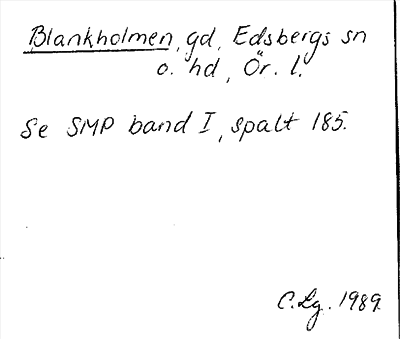 Blankholmen, gd, Edsbergs sn
o. hd, Ör. l.
Se SMP band I, spalt 185.
C. Lg. 1989.